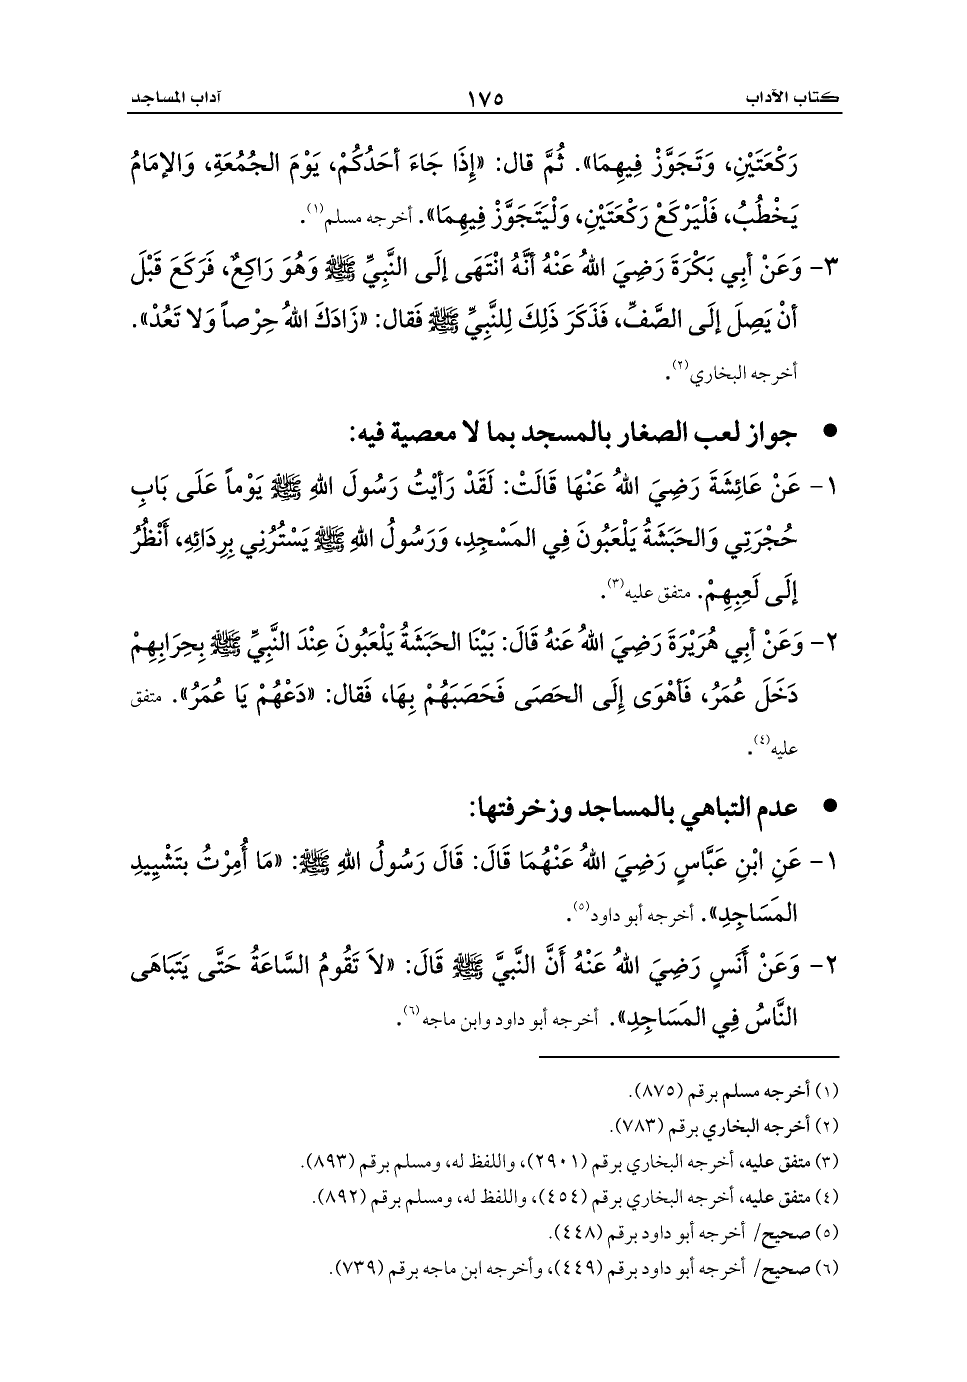 كتاب الآداب ١٧٥ آداب المساجد
رَكْعَتَيْنِ، وَتَجَوَّزْ فِيهِمَا». ثُمَّ قال: «إِذَا جَاءَ أحَدُكُمْ، يَوْمَ الجُمُعَةِ، وَالإمَامُ
يَخْطُبُ، فَلْيَرْكَعْ رَكْعَتَيْنِ، وَلْيَتَجَوَّزْ فِيهِمَا». أخرجه مسلم(١).
٣- وَعَنْ أبِي بَكْرَةَ رَضِيَ اللهُ عَنْهُ أنَّهُ انْتَهَى إلَى النَّبِيِّ ﷺ وَهُوَ رَاكِعٌ، فَرَكَعَ قَبْلَ
أنْ يَصِلَ إلَى الصَّفِّ، فَذَكَرَ ذَلِكَ لِلنَّبِيِّ ﷺ فَقال: «زَادَكَ اللهُ حِرْصاً وَلا تَعُدْ».
أخرجه البخاري(٢).
● جواز لعب الصغار بالمسجد بما لا معصية فيه:
١- عَنْ عَائِشَةَ رَضِيَ اللهُ عَنْهَا قَالَتْ: لَقَدْ رَأيْتُ رَسُولَ اللهِ ﷺ يَوْماً عَلَى بَابِ
حُجْرَتِي وَالحَبَشَةُ يَلْعَبُونَ فِي المَسْجِدِ، وَرَسُولُ اللهِ ﷺ يَسْتُرُنِي بِرِدَائِهِ، أَنْظُرُ
إلَى لَعِبِهِمْ. متفق عليه(٣).
٢- وَعَنْ أبِي هُرَيْرَةَ رَضِيَ اللهُ عَنهُ قَالَ: بَيْنَا الحَبَشَةُ يَلْعَبُونَ عِنْدَ النَّبِيِّ ﷺ بِحِرَابِهِمْ
دَخَلَ عُمَرُ، فَأهْوَى إِلَى الحَصَى فَحَصَبَهُمْ بِهَا، فَقال: «دَعْهُمْ يَا عُمَرُ». متفق
عليه(٤).
● عدم التباهي بالمساجد وزخرفتها:
١- عَنِ ابْنِ عَبَّاسٍ رَضِيَ اللهُ عَنْهُمَا قَالَ: قَالَ رَسُولُ اللهِ ﷺ: «مَا أُمِرْتُ بِتَشْيِيدِ
المَسَاجِدِ». أخرجه أبو داود(٥).
٢- وَعَنْ أَنَسٍ رَضِيَ اللهُ عَنْهُ أَنَّ النَّبِيَّ ﷺ قَالَ: «لاَ تَقُومُ السَّاعَةُ حَتَّى يَتَبَاهَى
النَّاسُ فِي المَسَاجِدِ». أخرجه أبو داود وابن ماجه(٦).
(١) أخرجه مسلم برقم (٨٧٥).
(٢) أخرجه البخاري برقم (٧٨٣).
(٣) متفق عليه، أخرجه البخاري برقم (٢٩٠١)، واللفظ له، ومسلم برقم (٨٩٣).
(٤) متفق عليه، أخرجه البخاري برقم (٤٥٤)، واللفظ له، ومسلم برقم (٨٩٢).
(٥) صحيح/ أخرجه أبو داود برقم (٤٤٨).
(٦) صحيح/ أخرجه أبو داود برقم (٤٤٩)، وأخرجه ابن ماجه برقم (٧٣٩).